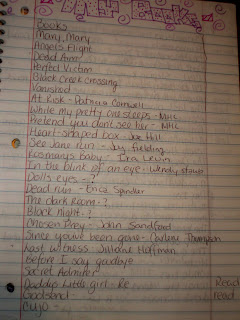 My Books
Books
Mary, Mary
Angels Flight
Dead Aim
Perfect Victim
Black Creek Crossing
Vanished
At Risk - Patricia Cornwell
While my pretty one sleeps - MHC
Pretend you don't see her - MHC
Heart-shaped box - Joe Hill
See Jane run - Joy fielding
Rosemary's baby - Ira Levin
In the blink of an eye - Wendy
Dolls eyes - ?
Dead run - Erica Spindler
The dark room - ?
Black night - ?
Chosen Prey - John Sandford
Since you've been gone - Carlene Thompson
Last witness - Jilliane Hoffman
Before I say goodbye
Secret Admirer
Daddys Little girl - Re Read
read
Cujo -